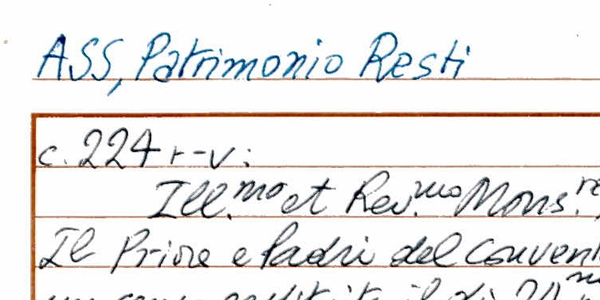 ASS, Patrimonio Resti
c. 224 r-v:
Ill.mo et Rev.mo Mons.re
Il Priore e Padri del Conven